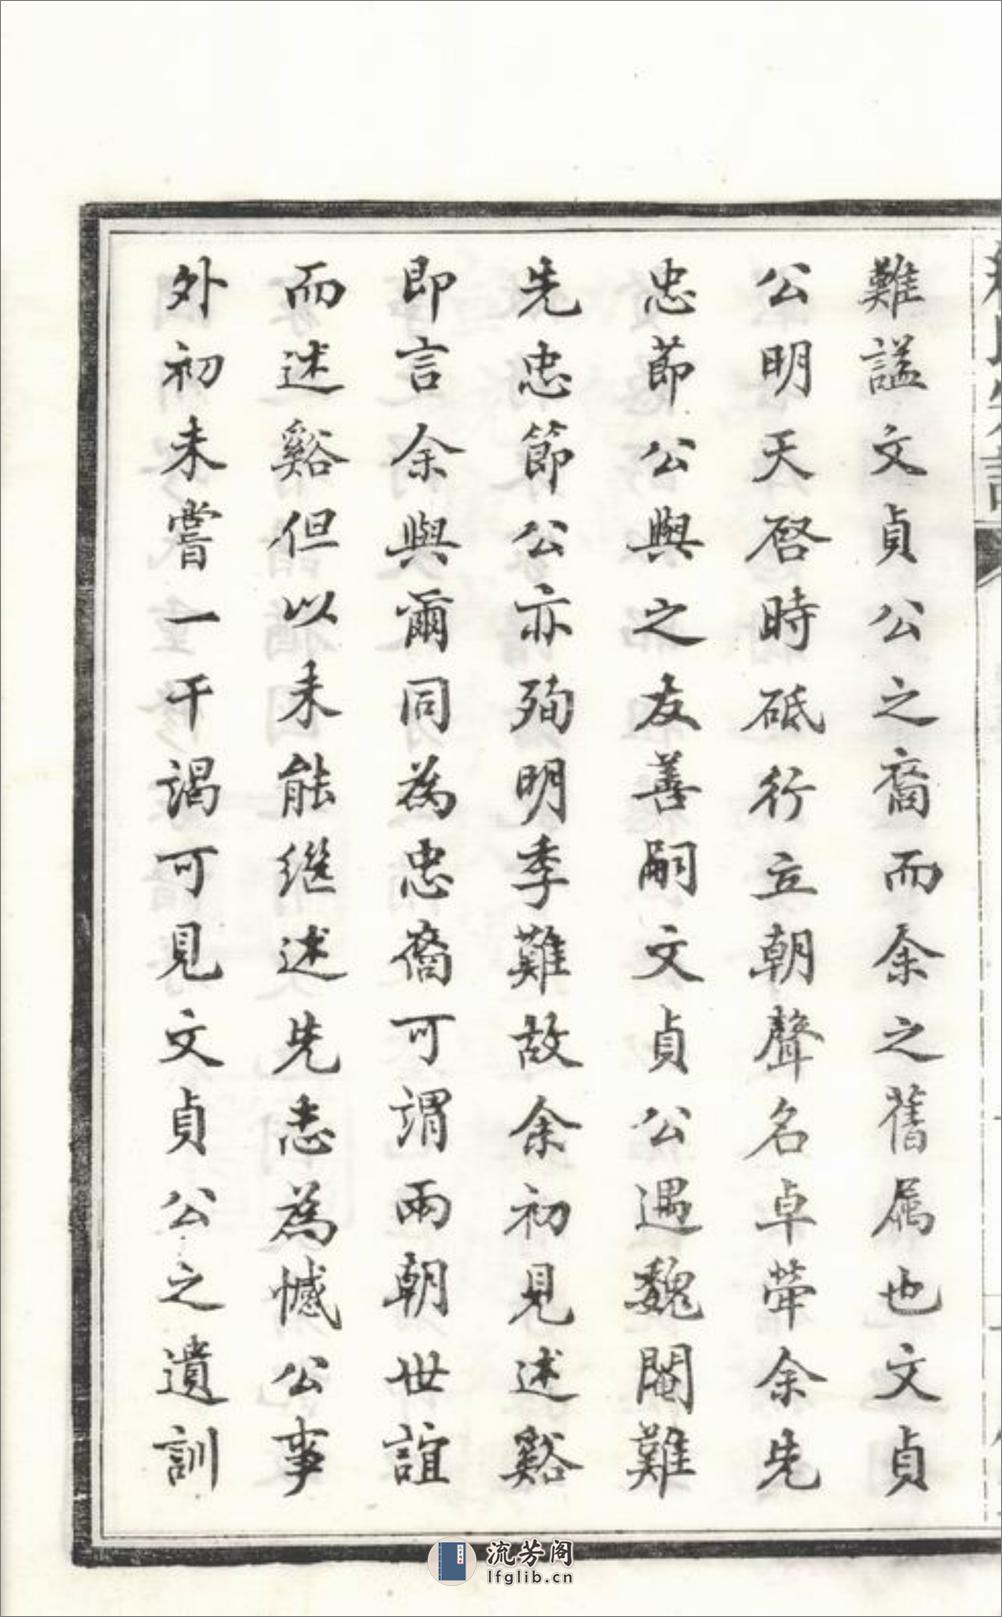 難諡文貞公之裔而余之舊屬也文貞
公明天啓時砥行立朝聲名卓犖余先
忠節公與之友善嗣文貞公遇魏閹難
先忠節公亦殉明季難故余初見述谿
即言余與爾同為忠裔可謂兩朝世誼
而述谿但以未能继述先志為憾公事
外初未嘗一干謁可見文貞公之遺訓
流芳阁
lfglib.cn